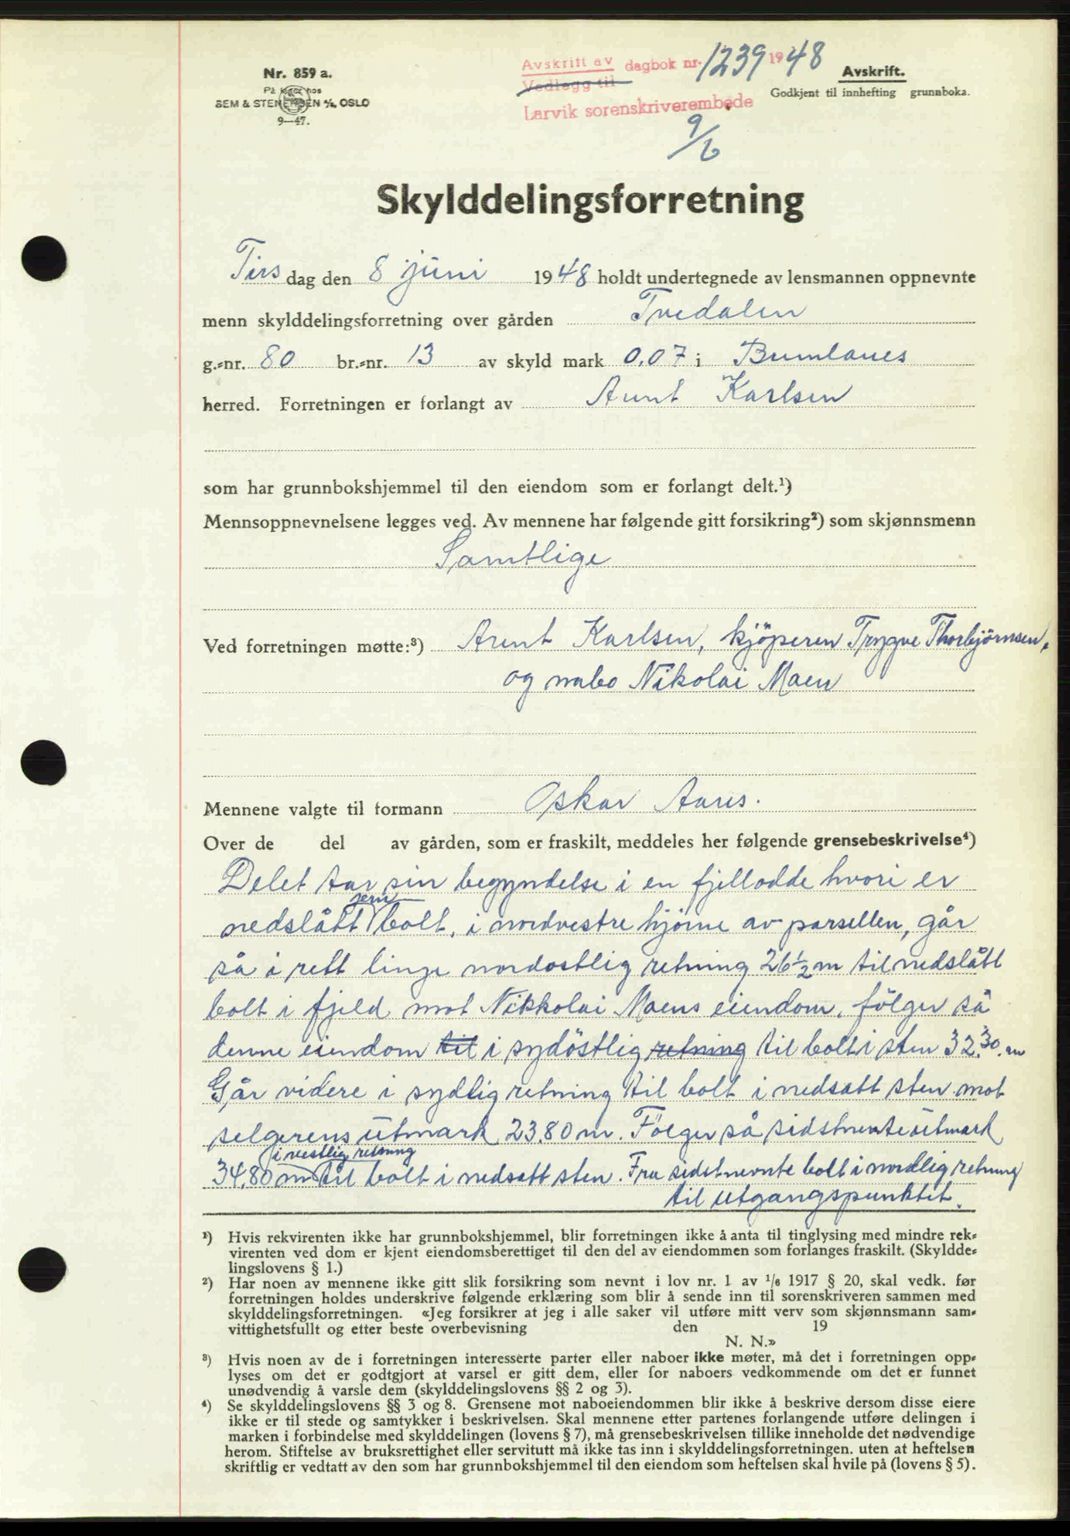 Nr. 859 a.
På lager hos
SEM & STENERSEN A/S, OSLO
9—47.
Avskrift av dagbok nr. 1239 1948
Vedlegg til
Larvik sorenskriverembede
9/6
Avskrift.
Godkjent til innhefting grunnboka.
Skylddelingsforretning
Tirsdag den 8 juni 1948 holdt undertegnede av lensmannen oppnevnte
menn skylddelingsforretning over gården Tvedalen
g.-nr. 80 br.-nr. 13 av skyld mark 0,07 i Brunlanes
herred. Forretningen er forlangt av Arent Karlsen
som har grunnbokshjemmel til den eiendom som er forlangt delt.¹)
Mennsoppnevnelsene legges ved. Av mennene har følgende gitt forsikring²) som skjønnsmenn
Samtlige
Ved forretningen møtte:³) Arent Karlsen, kjöperen Trygve Thorbjörnsen,
og nabo Nikolai Maen
Mennene valgte til formann Oskar Aares.
Over de del av gården, som er fraskilt, meddeles her følgende grensebeskrivelse⁴)
Delet tar sin begyndelse i en fjellodde hvori er
nedslått jern bolt, i nordvestre hjörne av parsellen, går
så i rett linje nordostlig retning 26½ m til nedslått
bolt i fjeld mot Nikkolai Maens eiendom, fölger så
denne eiendom til i sydöstlig retning til bolt i sten 32.30. m
Går videre i sydlig retning til bolt i nedsatt sten mot
selgerens utmark 23,80 m. Fölger så sidstnevnte utmark
i vestlig retning
34,80 m til bolt i nedsatt sten. Fra sidstnevnte bolt i nordlig retning
til utgangspunktet.
¹) Hvis rekvirenten ikke har grunnbokshjemmel, blir forretningen ikke å anta til tinglysing med mindre rek-
virenten ved dom er kjent eiendomsberettiget til den del av eiendommen som forlanges fraskilt. (Skyldde-
lingslovens § 1.)
²) Har noen av mennene ikke gitt slik forsikring som nevnt i lov nr. 1 av 1/6 1917 § 20, skal vedk. før
forretningen holdes underskrive følgende erklæring som blir å sende inn til sorenskriveren sammen med
skylddelingsforretningen. «Jeg forsikrer at jeg i alle saker vil utføre mitt verv som skjønnsmann sam-
vittighetsfullt og etter beste overbevisning den 19
N. N.»
³) Hvis noen av de i forretningen interesserte parter eller naboer ikke møter, må det i forretningen opp-
lyses om det er godtgjort at varsel er gitt dem, eller for naboers vedkommende om det er funnet
unødvendig å varsle dem (skylddelingslovens §§ 2 og 3).
⁴) Se skylddelingslovens §§ 3 og 8. Grensene mot naboeiendommen blir ikke å beskrive dersom disse eiere
ikke er til stede og samtykker i beskrivelsen. Skal mennene etter partenes forlangende utføre delingen i
marken i forbindelse med skylddelingen (lovens § 7), må grensebeskrivelsen tillike inneholde det nødvendige
herom. Stiftelse av bruksrettighet eller servitutt må ikke tas inn i skylddelingsforretningen. uten at heftelsen
skriftlig er vedtatt av den som har grunnbokshjemmel til den eiendom som heftelsen skal hvile på (lovens § 5).